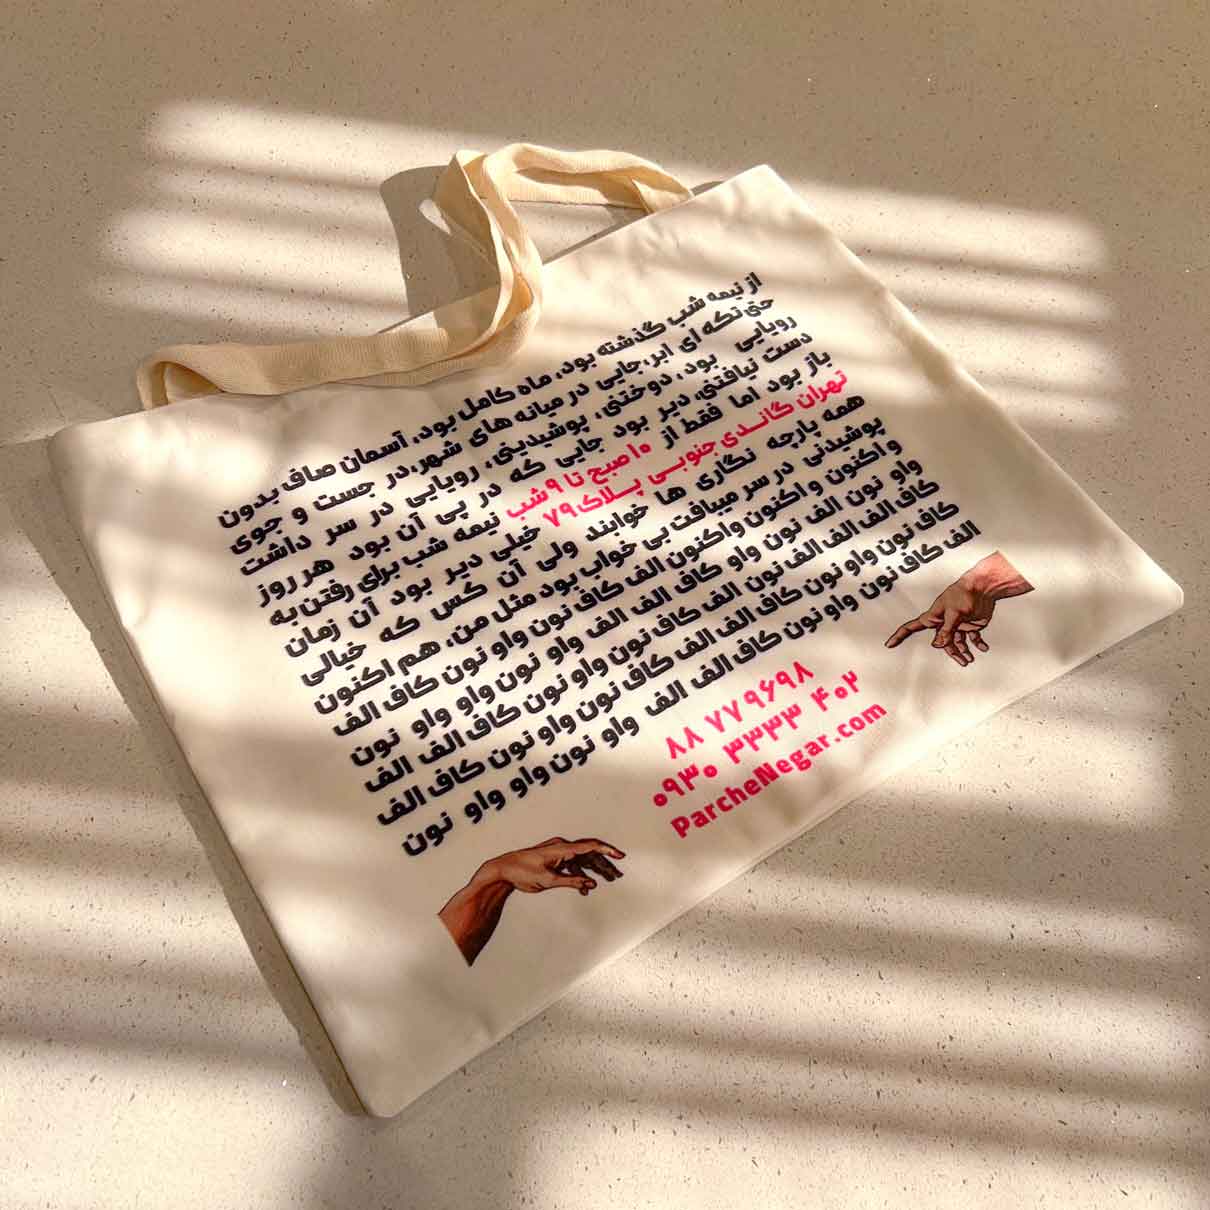 از نیمه شب گذشته بود، ماه کامل بود، آسمان صاف بدون
حتی تکه ای ابر،جایی در میانه های شهر،در جست و جوی
رویایی بود ، دوختنی، پوشیدینی، رویایی در سر داشت
دست نیافتنی، دیر بود جایی که در پی آن بود هر روز
باز بود اما فقط از ۱۰صبح تا ۹شب نیمه شب برای رفتن به
تهران گاندی جنوبی پلاک۷۹ خیلی دیر بود آن زمان
همه پارچه نگاری ها خوابند ولی آن کس که خیالی
پوشیدنی در سر میبافت بی خواب بود مثل من، هم اکنون
و اکنون و اکنون واکنون الف کاف نون واو نون کاف الف
واو نون الف نون واو کاف الف الف واو نون واو واو نون
کاف الف الف الف نون الف کاف نون واو نون کاف الف الف
کاف نون واو نون کاف الف الف الف کاف نون واو نون کاف الف
الف کاف نون واو نون کاف الف الف واو نون واو واو نون
۸۸ ۷۷۹۶۹۸
۰۹۳۰ ۳۳۳۳ ۴۰۲
ParcheNegar.com